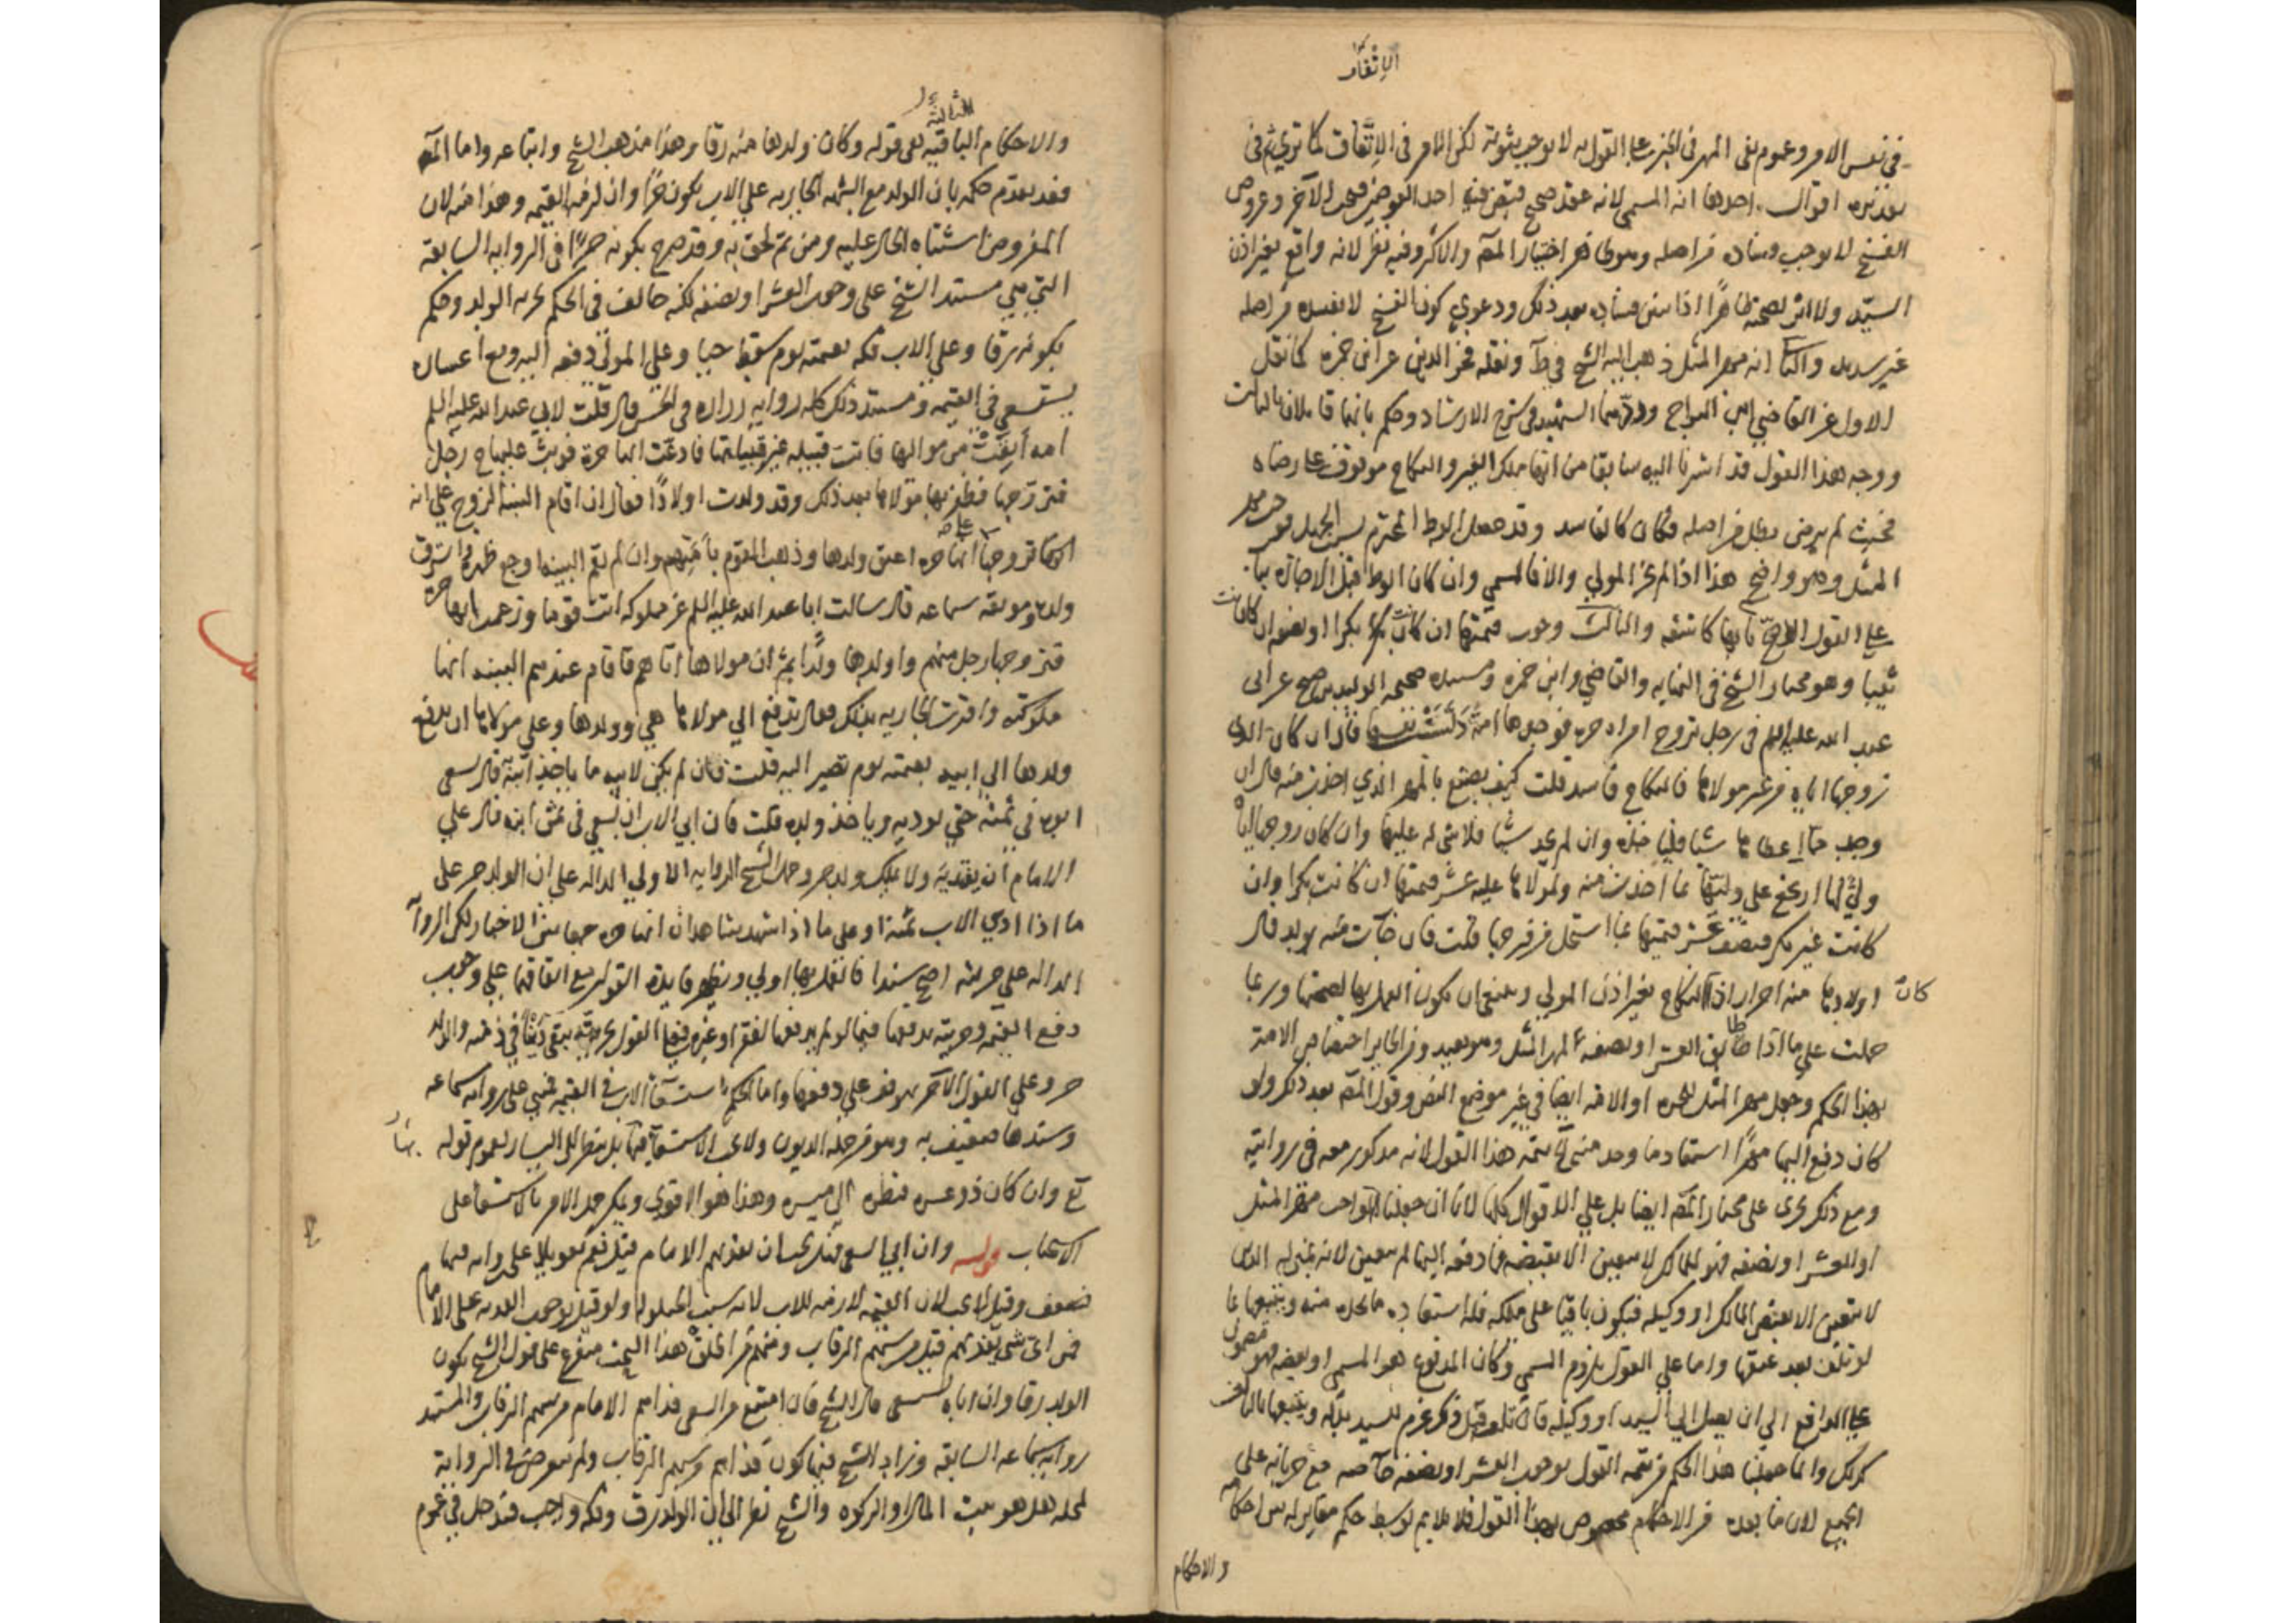 الاتفاق
في نفس الامر وعموم نفي المهر في الخبر على القول به لا يوجب ثبوته لكن الامر في الاتفاق كما ترى ثم في
تقديره اقوال احدها انه المسمى لانه عقد صحيح فيقتضي احد العوضين الآخر وعروض
الفسخ لا يوجب فساده من اصله وسوى هو اختيار المصه والاكثر وفيه نظر لانه واقع بغير اذن
السيد ولا اثر لصحته ظاهرا اذا تبين فساده بعد ذلك ودعوى كون الفسخ لا يفسده من اصله
غير سديد والثاني انه مهر المثل ذهب اليه الشيخ في ط ونقله فخر الدين عن ابن حمزه كما نقل
الاول عن القاضي ابن البراج وردهما الشهيد في شرح الارشاد وحكم بانهما قايلان بالثالث
ووجه هذا القول قد اشرنا اليه سابقا من انها ملك الغير والنكاح موقوف على رضاه
فحيث لم يرض بطل من اصله فكان كالفاسد وقد حصل الوطء المحترم بسبب الجهل فوجب مهر
المثل وهو واضح هذا اذا لم يجز المولى والا فالمسمى وان كان الوطء قبل الاجازه بنا
على القول الاصح بانها كاشفه والثالث وجوب عشر قيمتها ان كانت بكرا او نصفه ان كانت
ثيبا وهو مختار الشيخ في النهايه والقاضي وابن حمزه ومستنده صحيحه الوليد بن صبيح عن ابي
عبد الله عليه السلم في رجل تزوج امراه حره فوجدها امة دلست نفسها قال ان كان الذي
زوجها اياه من غير مولاها فالنكاح فاسد قلت كيف يصنع بالمهر الذي اخذت منه قال ان
وجد مما اعطاها شيا فلياخذه وان لم يجد شيا فلا شى له عليها وان كان زوجها اياه
ولي لها ارتجع على وليها بما اخذت منه ولمولاها عليه عشر قيمتها ان كانت بكرا وان
كانت غير بكر فنصف عشر قيمتها بما استحل من فرجها قلت فان جآت منه بولد قال
اولادها منه احرار اذا كان النكاح بغير اذن المولى وينبغي ان يكون العمل بها لصحتها وربما
حملت على ما اذا طابق العشر او نصفه لمهر المثل وهو بعيد ومن الجايز اختصاص الامة
بهذا الحكم وجعل مهر المثل للحره او الامه ايضا في غير موضع النص وقول المصه بعد ذكر ولو
كان دفع اليها مهرا استعاد ما وجد منه من تتمه هذا القول لانه مذكور معه في روايته
ومع ذلك يجرى على مختار المصه ايضا بل على الاقوال كلها لانا ان جعلنا الواجب مهر المثل
او العشر او نصفه فهو للمالك لا يتعين الا بقبضه فما دفعه اليها لم يتعين لانه بمنزله الدين
لا يتعين الا بقبض المالك او وكيله فيكون باقيا على ملكه فله استعاده ما يجده منه ويتبعها بما
لو تلف بعد عتقها واما على القول بلزوم المسمى وكان المدفوع هو المسمى او بعضه فهو مضمون
على الدافع الى ان يصل الى السيد او وكيله فان تلف قبل ذلك غرم للسيد بدله ويتبعها بالتالف
كذلك وانما جعلنا هذا الحكم من تتمه القول بوجوب العشر او نصفه خاصه مع جريانه على
الجميع لان ما بعده من الاحكام مخصوص بهذا القول فلا يلايم توسط حكم مغاير له بين احكامه
والاحكام
والاحكام الثالثة الباقيه هي قوله وكان ولدها منه رقا وهذا مذهب الشيخ واتباعه واما المصه
فقد تقدم حكمه بان الولد مع الشبهه الجاريه على الاب يكون حرا وان لزمه القيمه وهو هنا منه لان
المفروض اشتباه الحال عليه ومن ثم لحق به وقد صرح بكونه حرا في الروايه السابقه
التي هي مستند الشيخ على وجوب العشر او نصفه لكنه خالف في الحكم بحريه الولد وحكم
بكونه رقا وعلى الاب فكه بقيمته يوم سقط حيا وعلى المولى دفعه اليه ومع اعساره
يستسعي في القيمه ومستند ذلك كله روايه زراره في الحسن قال قلت لابي عبد الله عليه السلم
امه ابقت من مواليها فاتت قبيله غير قبيلتها فادعت انها حرة فوثب عليها ح رجل
فتزوجها فظفر بها مولاها بعد ذلك وقد ولدت اولادا فقال ان اقام البينه الزوج على انه
انما تزوجها على انها حره اعتق ولدها وذهب القوم بامتهم وان لم يقم البينه اوجع ظهره واسترق
ولده وموثقه سماعه قال سالت ابا عبد الله عليه السلم عن مملوكه اتت قوما وزعمت انها حرة
فتزوجها رجل منهم واولدها ولدا ثم ان مولاها اتاهم فاقام عندهم البينه انها
مملوكته واقرت الجاريه بذلك فقال تدفع الى مولاها هي وولدها وعلى مولاها ان يدفع
ولدها الى ابيه بقيمته يوم تصير اليه قلت فان لم يكن لابيه ما ياخذ ابنه قال يسعى
ابوه في ثمنه حتى يوديه وياخذ ولده قلت فان ابى الاب ان يسعى في ثمن ابنه قال على
الامام ان يفتديه ولا يملك ولد حر وحمل الشيخ الروايه الاولى الداله على ان الولد حر على
ما اذا ادى الاب ثمنه او على ما اذا شهد شاهدان انها حره جمعا بين الاخبار لكن الروايه
الداله على حريته اصح سندا فالعمل بها اولى ويظهر فايدة القولين مع اتفاقهما على وجوب
دفع القيمه وحريته بدفعها فيما لو لم يدفعها لفقر او غيره فعلى القول بحريته تبقى دينا في ذمته والولد
حر وعلى القول الآخر يتوقف على دفعها واما الحكم باستسعآ الاب في القيمه فمبني على روايه سماعه
وسندها ضعيف به وهو من جمله الديون ولا يجب الاستسعآ فيها بل ينظر الى اليسار لعموم قوله
تع وان كان ذو عسره فنظره الى ميسره وهذا هو الاقوى ويمكن حمل الامر بالاستسعا على
الاستحباب قوله وان ابي السعي فهل يجب ان يفديهم الامام قيل نعم تعويلا على روايه فيها
ضعف وقيل لا يجب لان القيمه لازمه للاب لانه سبب الحيلوله ولو قيل بوجوب الفديه على الامام
فمن اى شى يفديهم قيل من سهم الرقاب ومنهم من اطلق هذا البحث متفرع على قول الشيخ بكون
الولد رقا وان اباه يسعى قال الشيخ فان امتنع من السعى فداهم الامام من سهم الرقاب والمستند
روايه سماعه السابقه وزاد الشيخ فيها كون فداهم من سهم الرقاب ولم يتعرض في الرواية
لمحله هل هو بيت المال او الزكوه والشيخ نظر الى ان الولد رق وفكه واجب فيدخل في عموم